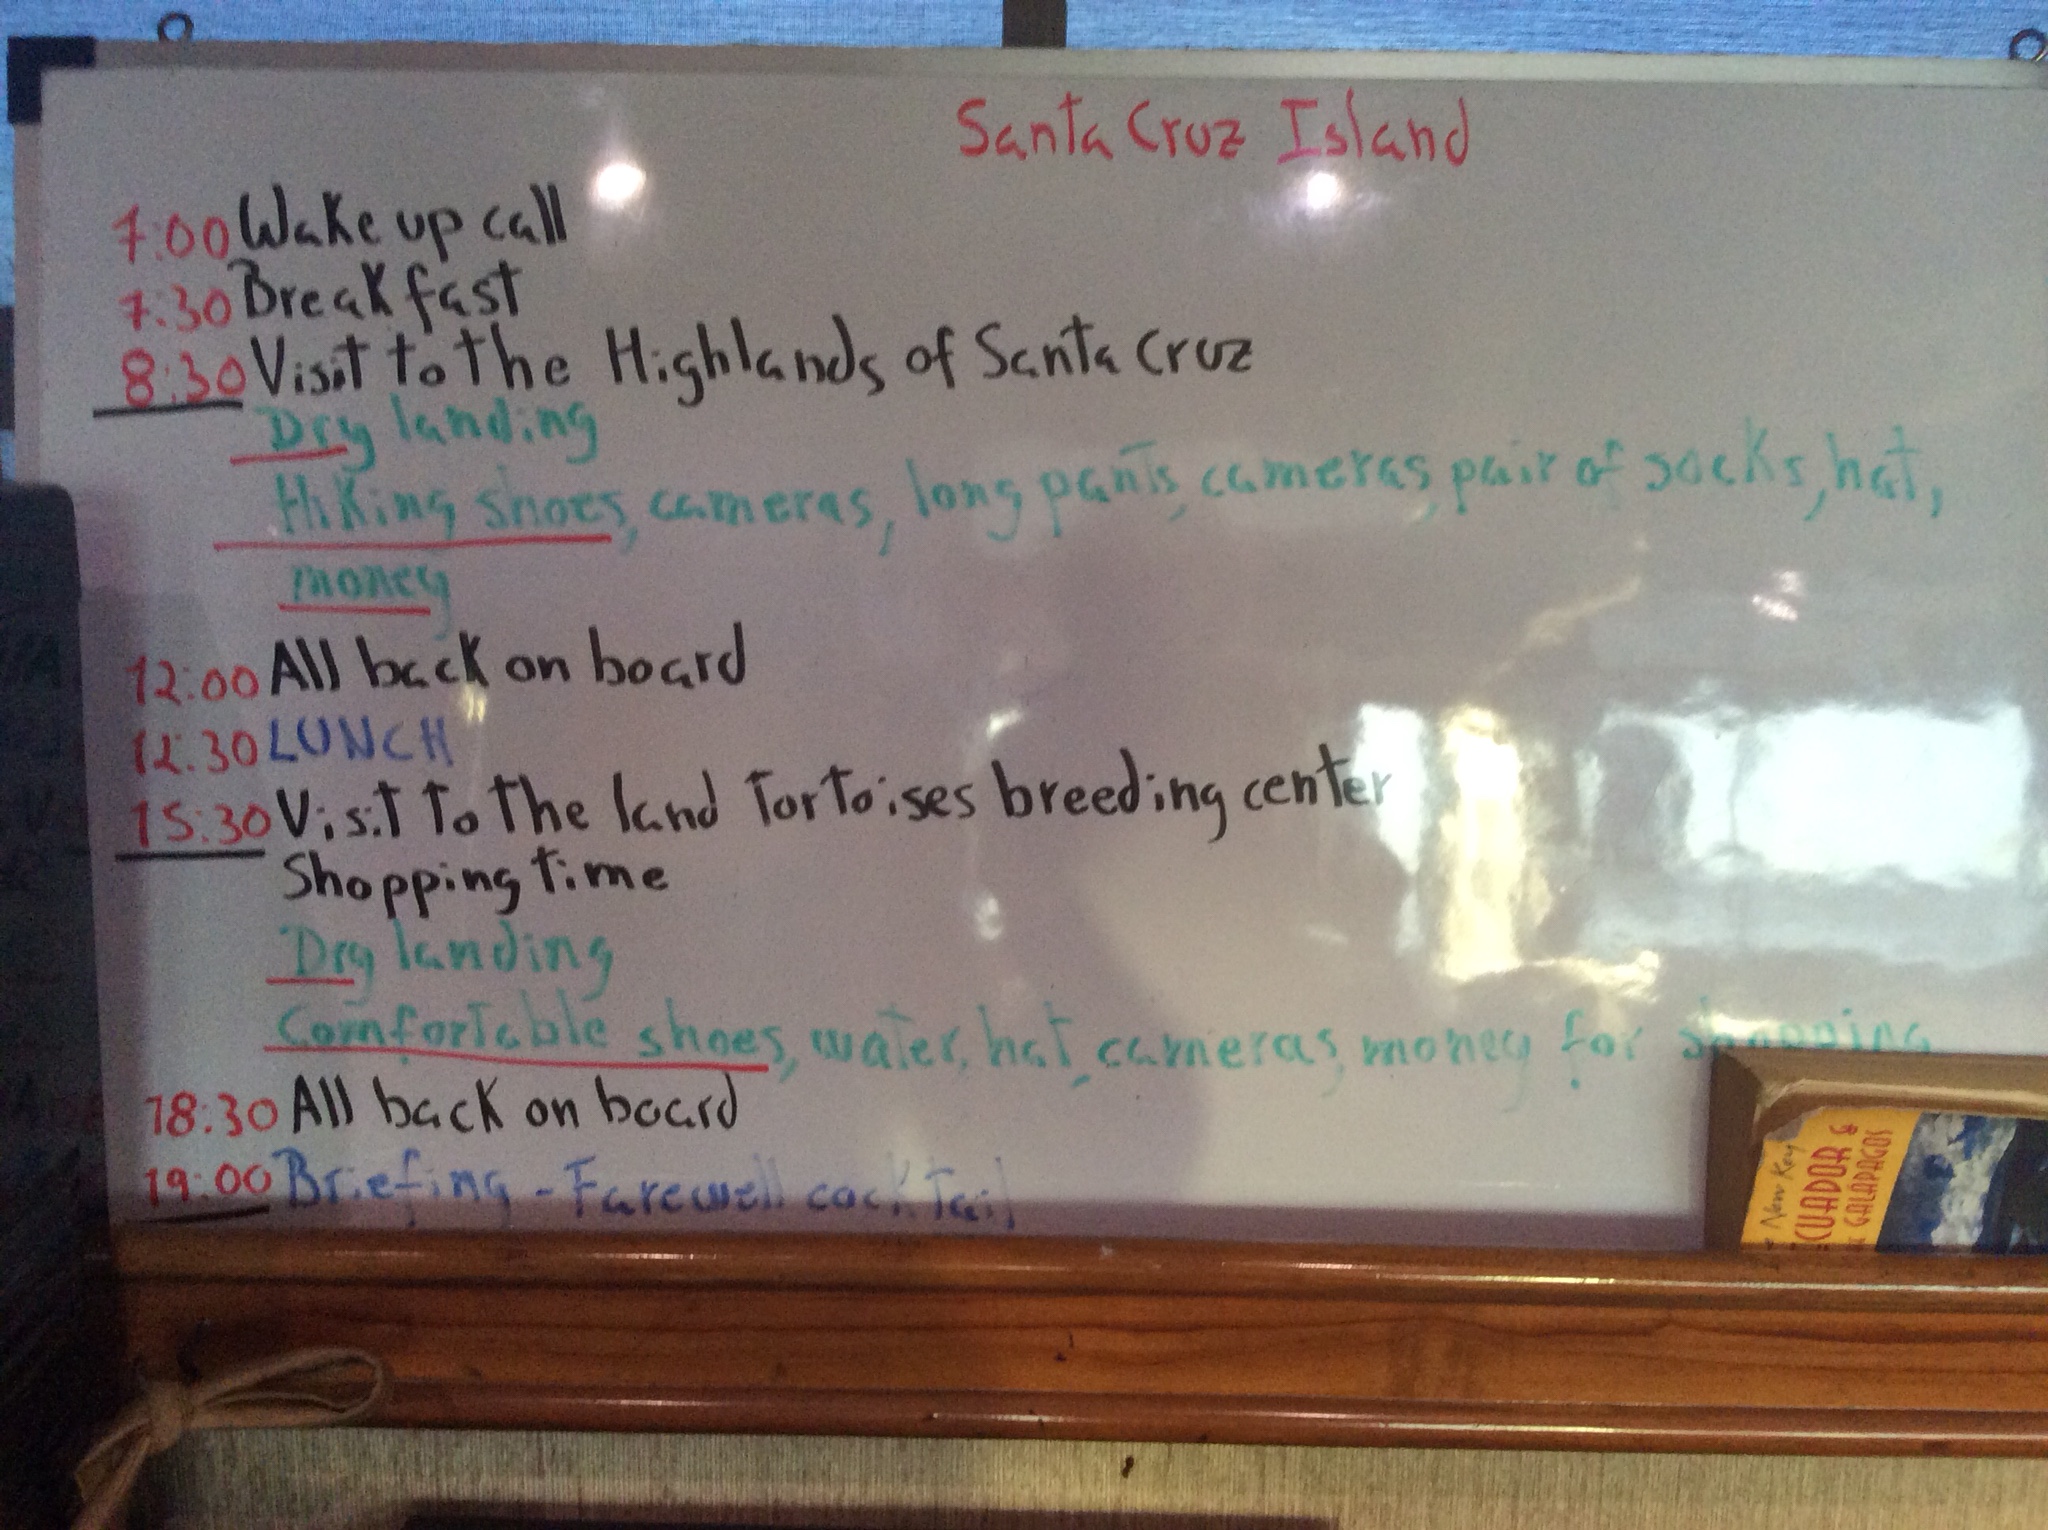 Santa Cruz Island
7:00 Wake up call
7:30 Breakfast
8:30 Visit to the Highlands of Santa Cruz
Dry landing
Hiking shoes, cameras, long pants, cameras, pair of socks, hat,
money
12:00 All back on board
12:30 LUNCH
15:30 Visit to the land Tortoises breeding center
Shopping time
Dry landing
Comfortable shoes, water, hat, cameras, money for shopping
18:30 All back on board
19:00 Briefing - Farewell cocktail
New Key
ECUADOR &
GALAPAGOS